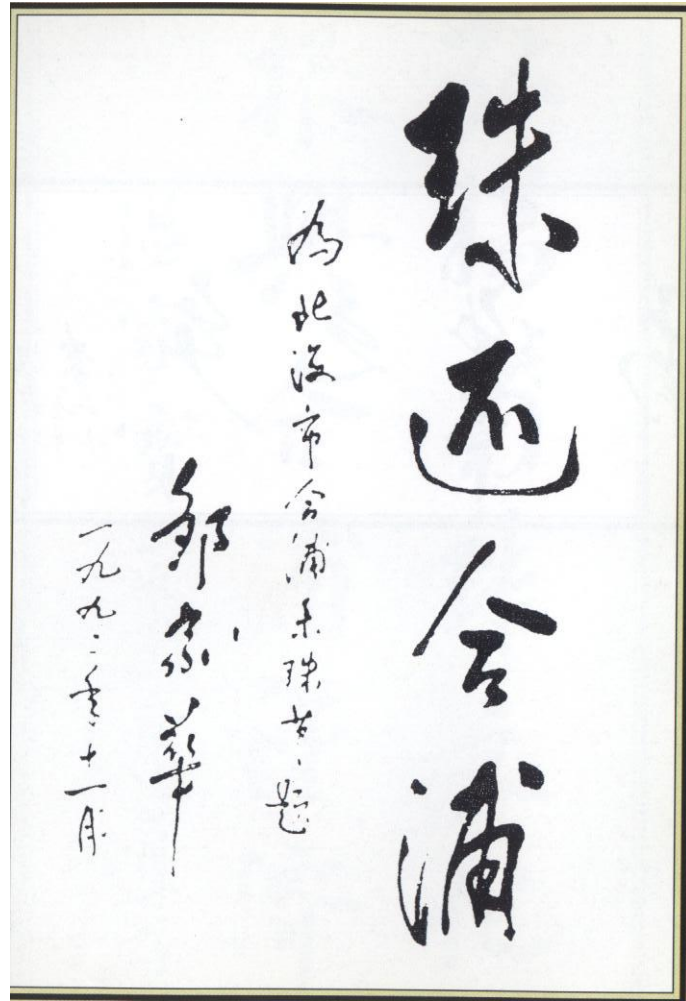 珠还合浦
為北海市合浦珠题
鄒家華
一九九二年十一月